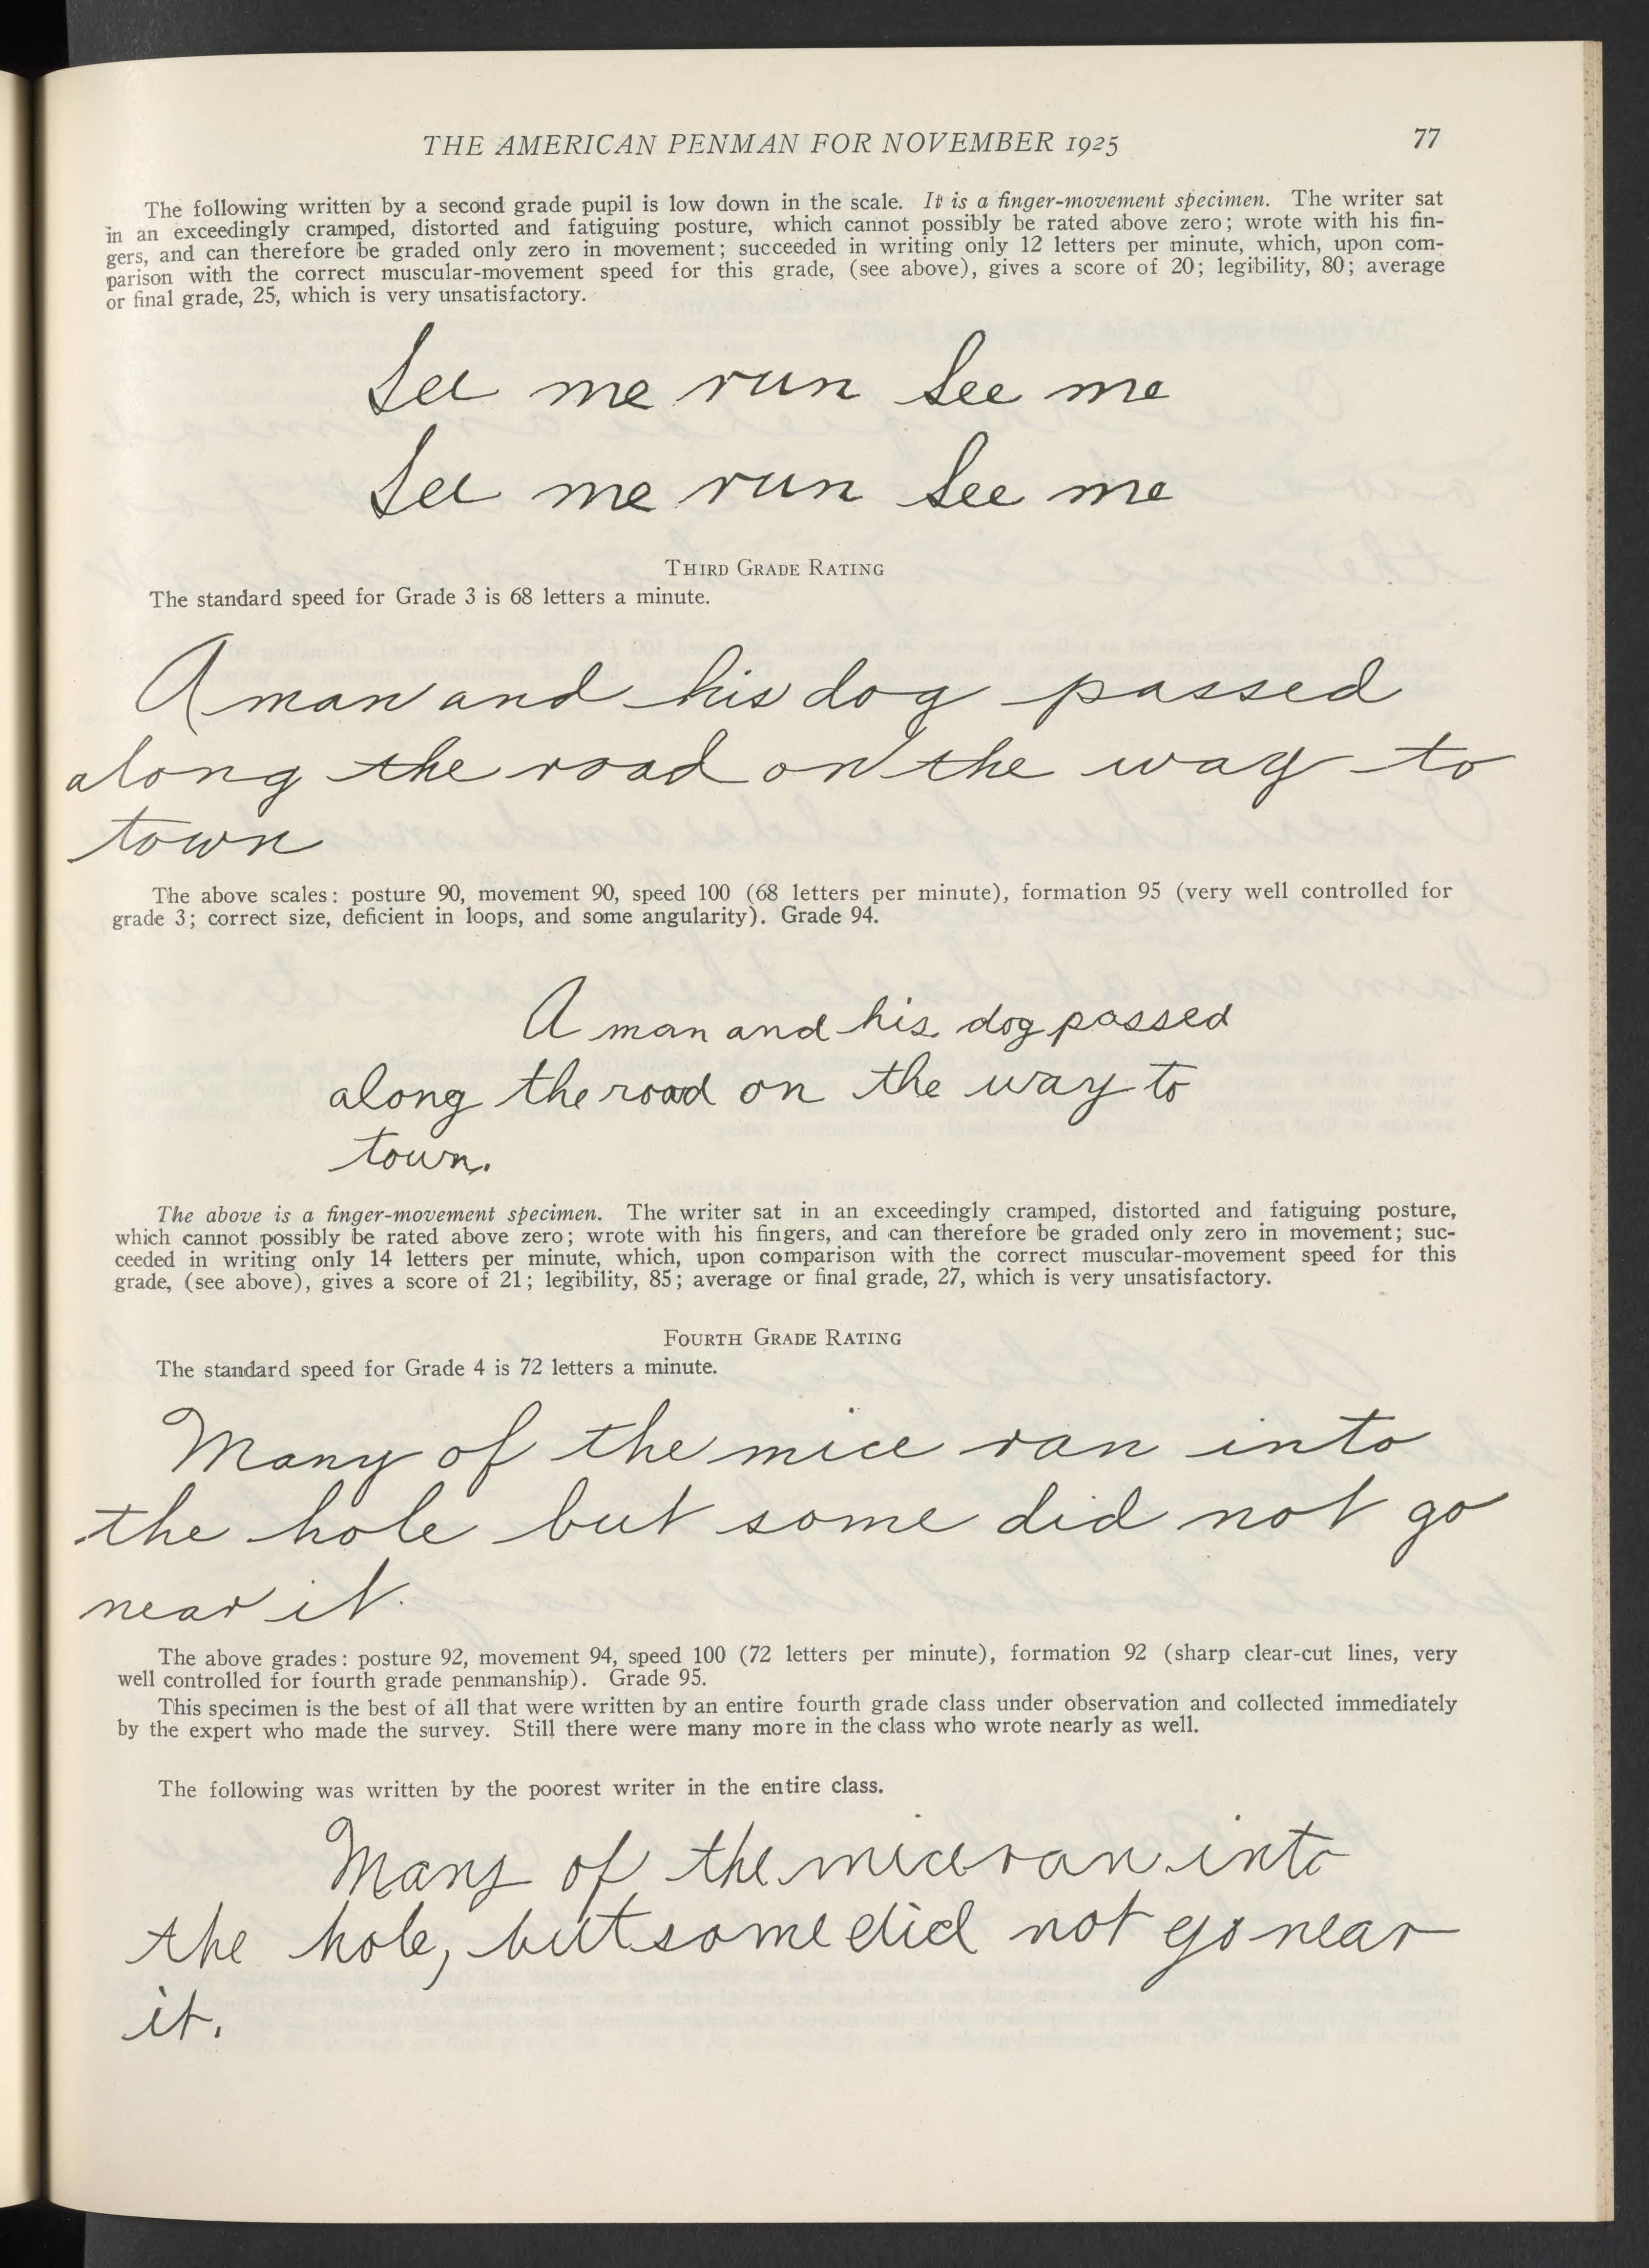 THE AMERICAN PENMAN FOR NOVEMBER 1925 77
The following written by a second grade pupil is low down in the scale. It is a finger-movement specimen. The writer sat
in an exceedingly cramped, distorted and fatiguing posture, which cannot possibly be rated above zero; wrote with his fin-
gers, and can therefore be graded only zero in movement; succeeded in writing only 12 letters per minute, which, upon com-
parison with the correct muscular-movement speed for this grade, (see above), gives a score of 20; legibility, 80; average
or final grade, 25, which is very unsatisfactory.
See me run See me
See me run See me
THIRD GRADE RATING
The standard speed for Grade 3 is 68 letters a minute.
A man and his dog passed
along the road on the way to
town
The above scales: posture 90, movement 90, speed 100 (68 letters per minute), formation 95 (very well controlled for
grade 3; correct size, deficient in loops, and some angularity). Grade 94.
A man and his dog passed
along the road on the way to
town.
The above is a finger-movement specimen. The writer sat in an exceedingly cramped, distorted and fatiguing posture,
which cannot possibly be rated above zero; wrote with his fingers, and can therefore be graded only zero in movement; suc-
ceeded in writing only 14 letters per minute, which, upon comparison with the correct muscular-movement speed for this
grade, (see above), gives a score of 21; legibility, 85; average or final grade, 27, which is very unsatisfactory.
FOURTH GRADE RATING
The standard speed for Grade 4 is 72 letters a minute.
Many of the mice ran into
the hole but some did not go
near it.
The above grades: posture 92, movement 94, speed 100 (72 letters per minute), formation 92 (sharp clear-cut lines, very
well controlled for fourth grade penmanship). Grade 95.
This specimen is the best of all that were written by an entire fourth grade class under observation and collected immediately
by the expert who made the survey. Still there were many more in the class who wrote nearly as well.
The following was written by the poorest writer in the entire class.
Many of the mice ran into
the hole, but some did not go near
it.